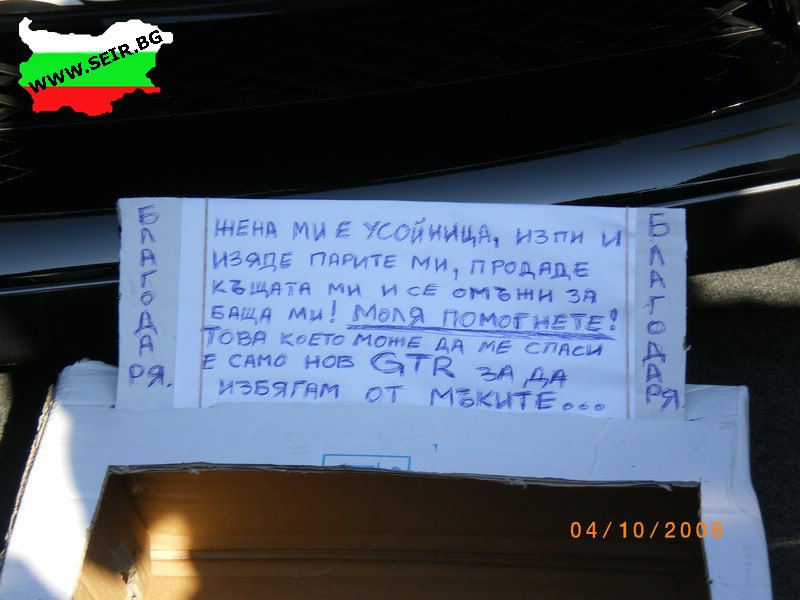 WWW.SEIR.BG
БЛАГОДАРЯ.
ЖЕНА МИ Е УСОЙНИЦА, ИЗПИ И
ИЗЯДЕ ПАРИТЕ МИ, ПРОДАДЕ
КЪЩАТА МИ И СЕ ОМЪЖИ ЗА
БАЩА МИ! МОЛЯ ПОМОГНЕТЕ!
ТОВА КОЕТО МОЖЕ ДА МЕ СПАСИ
Е САМО НОВ GTR ЗА ДА
ИЗБЯГАМ ОТ МЪКИТЕ...
БЛАГОДАРЯ.
04/10/2008